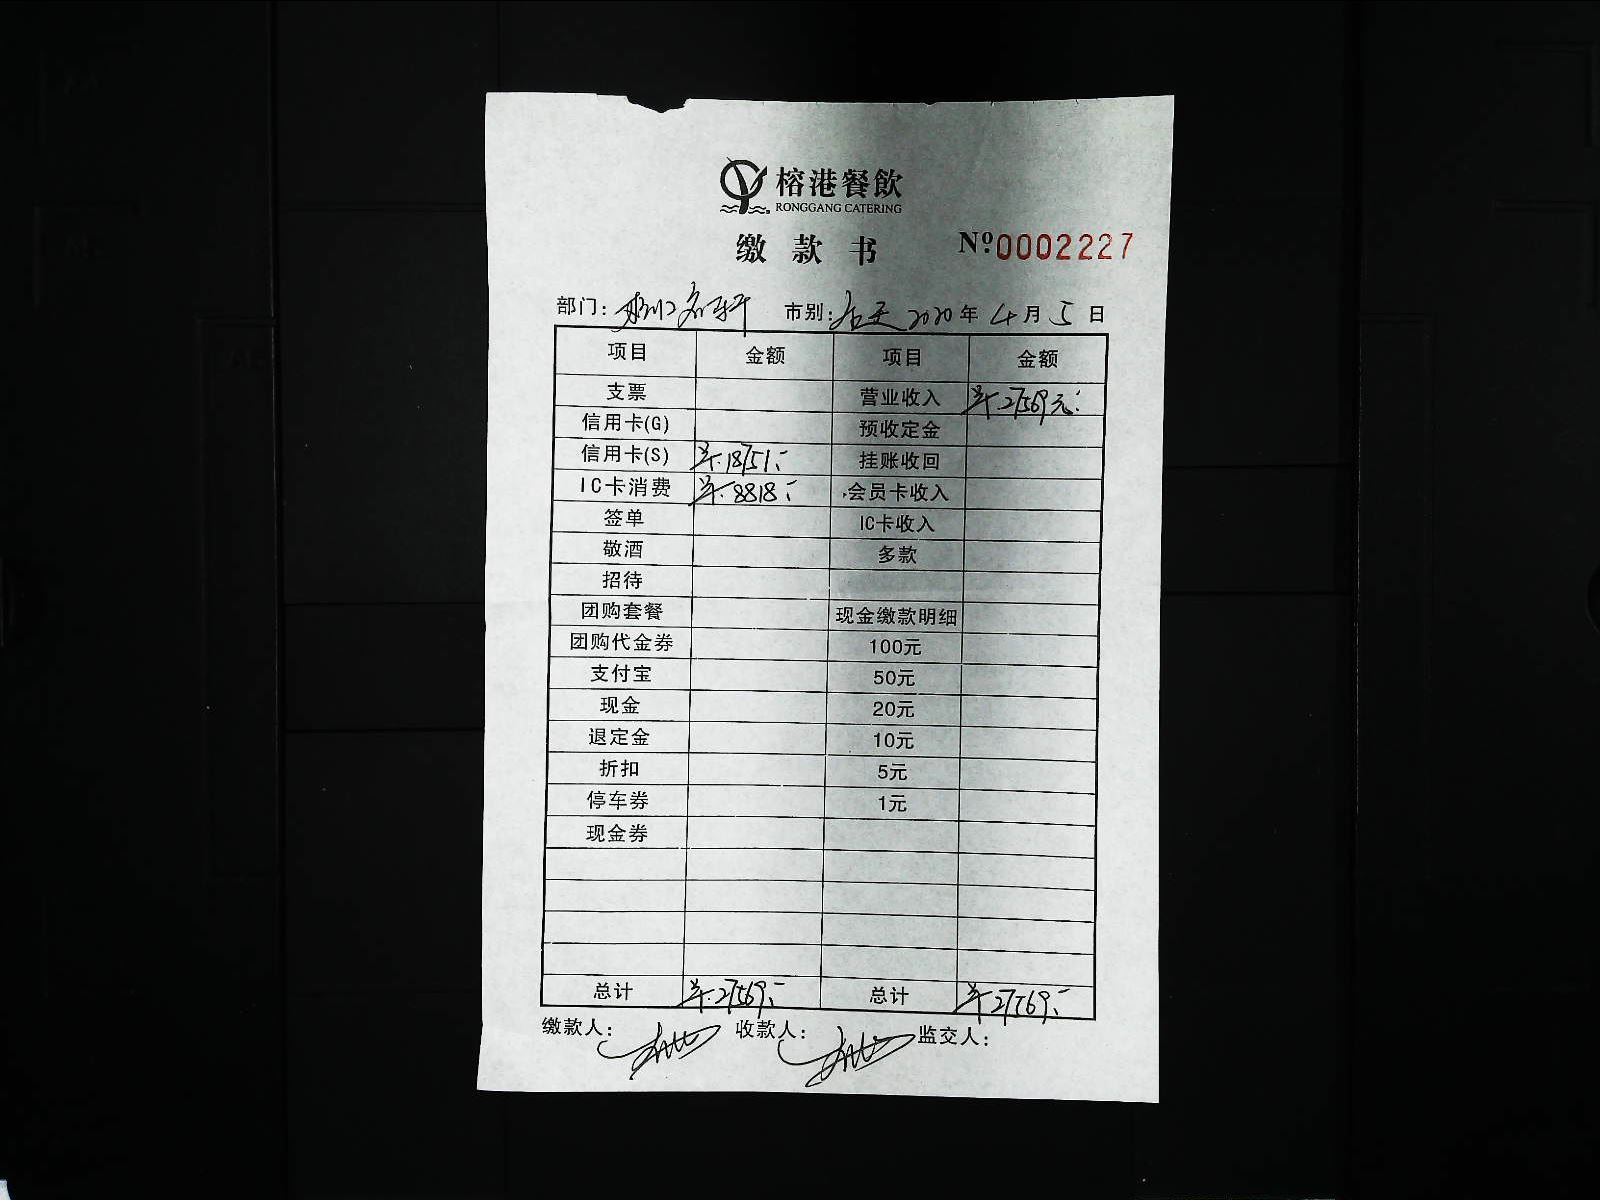 榕港餐飲
RONGGANG CATERING
缴款书 Nº0002227
部门: 市别: 2020年4月5日
项目 金额 项目 金额
支票 营业收入 ¥27569元
信用卡(G) 预收定金
信用卡(S) ¥18751.- 挂账收回
IC卡消费 ¥8818.- 会员卡收入
签单 IC卡收入
敬酒 多款
招待
团购套餐 现金缴款明细
团购代金券 100元
支付宝 50元
现金 20元
退定金 10元
折扣 5元
停车券 1元
现金券
总计 ¥27569.- 总计 ¥27569.-
缴款人: 收款人: 监交人: